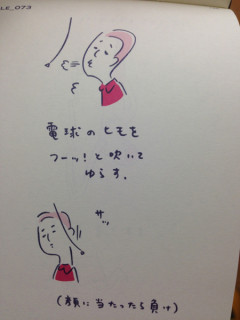 LE_073
電球のヒモを
フーッ!と吹いて
ゆらす。
サッ
(顔に当たったら負け)